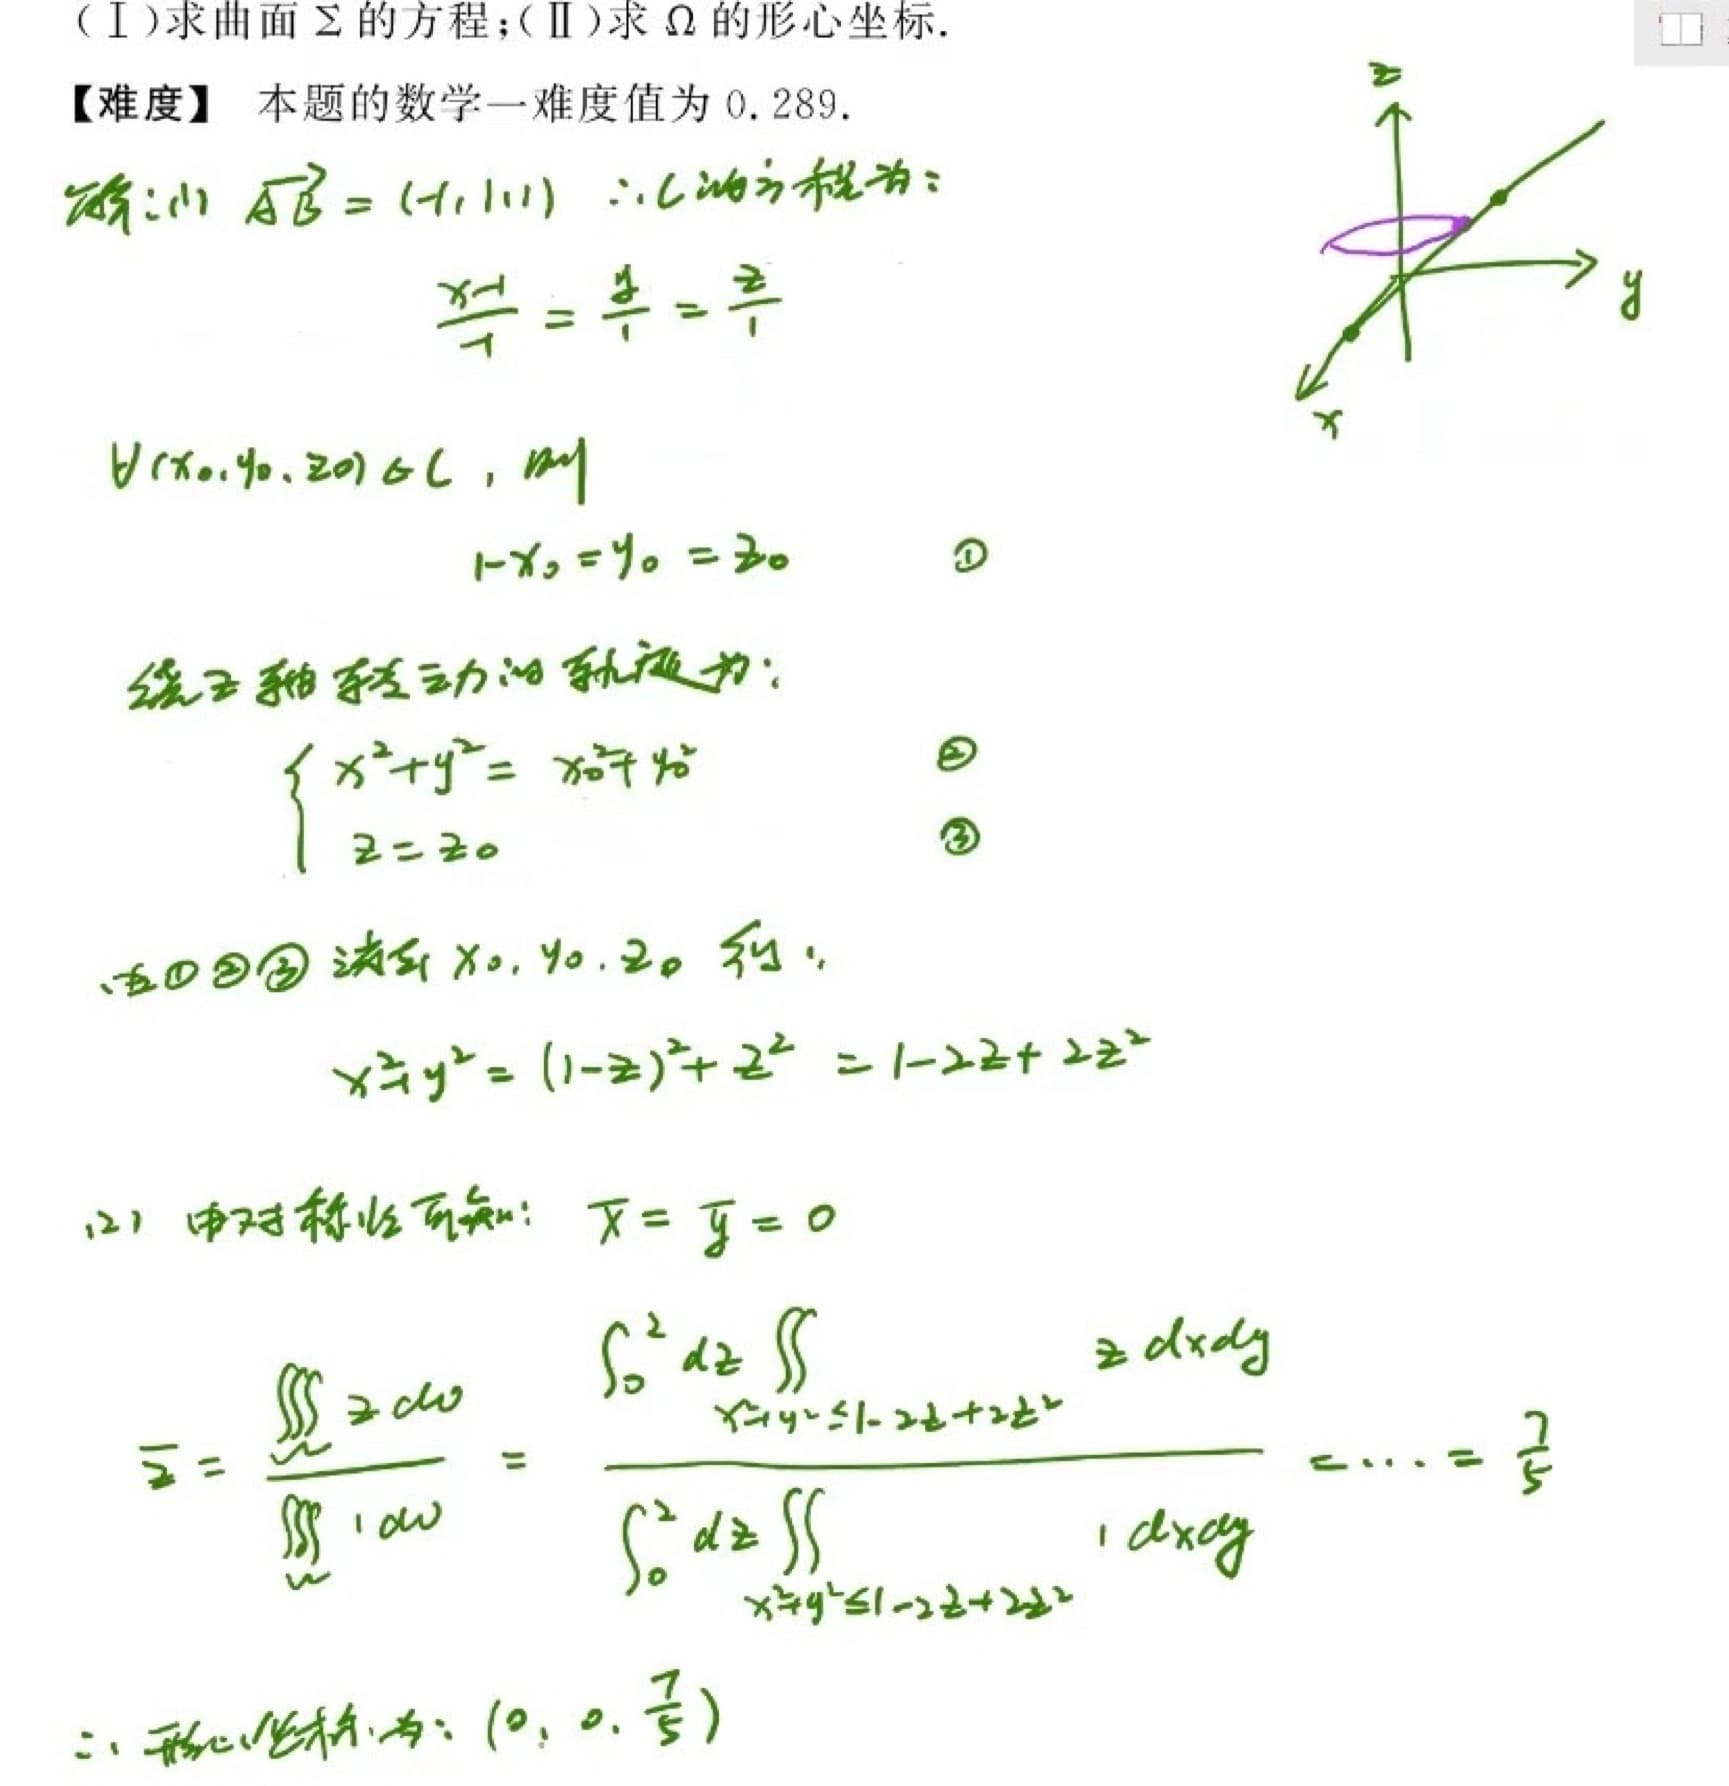 (Ⅰ)求曲面 Σ 的方程;(Ⅱ)求 Ω 的形心坐标.
【难度】 本题的数学一难度值为 0.289.
解:(1) AB→ = (-1,1,1) ∴ L 的方程为:
(x-1)/(-1) = y/1 = z/1
∀(x₀,y₀,z₀)∈L , 则
1-x₀ = y₀ = z₀ ①
绕z轴转动的轨迹为:
{ x²+y² = x₀²+y₀² ②
z = z₀ ③
由①②③消去 x₀, y₀, z₀ 得:
x²+y² = (1-z)²+z² = 1-2z+2z²
(2) 由对称性可知: x̄ = ȳ = 0
z̄ = ∭_Ω z dv / ∭_Ω 1 dv = ∫₀² dz ∬_{x²+y²≤1-2z+2z²} z dxdy / ∫₀² dz ∬_{x²+y²≤1-2z+2z²} 1 dxdy = ... = 7/5
∴ 形心坐标为: (0, 0, 7/5)
z
y
x